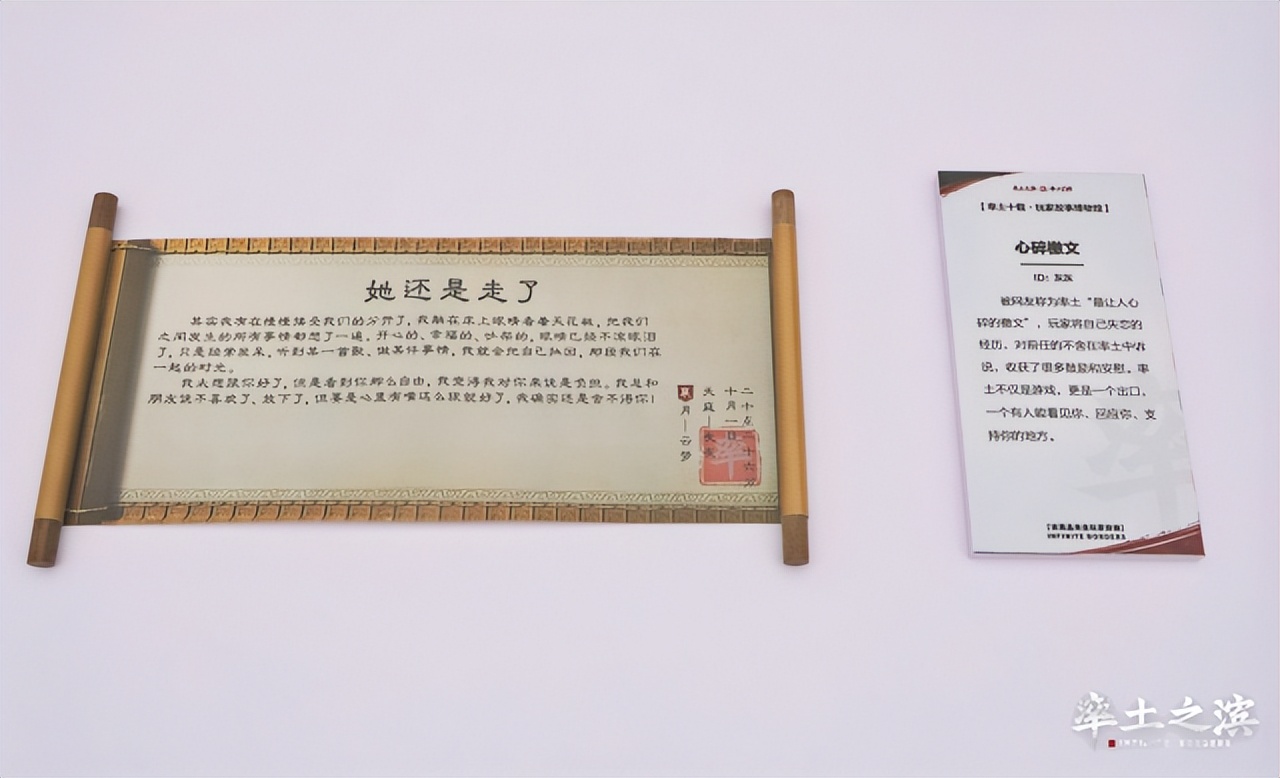 她还是走了
其实我有在慢慢接受我们的分开了，我躺在床上眼睛看着天花板，把我们
之间发生的所有事情都想了一遍，开心的、幸福的、吵架的，眼睛已经不流眼泪
了，只是经常发呆，听到某一首歌、做某件事情，我就会把自己拉回，那段我们在
一起的时光。
我太想跟你好了，但是看到你那么自由，我觉得我对你来说是负担。我总和
朋友说不喜欢了、放下了，但要是心里有嘴这么硬就好了，我确实还是舍不得你！
二十点二十六分
十月一日
天庭—
月—云梦
率土十载·玩家故事博物馆】
心碎檄文
ID：
被网友称为率土“最让人心
碎的檄文”，玩家将自己失恋的
经历、对前任的不舍在率土中诉
说，收获了很多鼓励和安慰。率
土不仅是游戏，更是一个出口，
一个有人能看见你、回应你、支
持你的地方。
INFINITE BORDERS
率土之滨